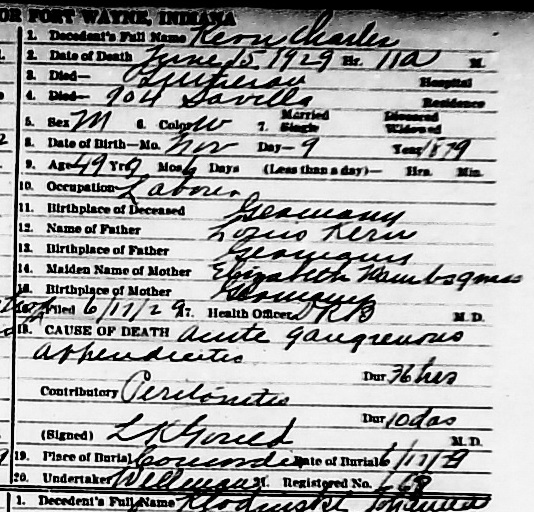 OR FORT WAYNE, INDIANA
1. Decedent's Full Name Kern Charles
2. Date of Death June 15, 1929 Hr. 11a M.
3. Died— Lutheran Hospital
4. Died— 904 Savilla Residence
5. Sex M 6. Color W 7. Married Single Divorced Widowed
8. Date of Birth—Mo. Nov Day— 9 Year 1879
9. Age 49 Yrs 7 Mos 6 Days (Less than a day)— Hrs. Min.
10. Occupation Laborer
11. Birthplace of Deceased Germany
12. Name of Father Louis Kern
13. Birthplace of Father Germany
14. Maiden Name of Mother Elizabeth Wambsganss
15. Birthplace of Mother Germany
16. Filed 6/17/29 17. Health Officer DRB M. D.
18. CAUSE OF DEATH Acute gangrenous
appendicitis
Dur 36 hrs
Contributory Peritonitis
Dur 10 das
(Signed) L K Gould M. D.
19. Place of Burial Concordia Date of Burial 6/17/29
20. Undertaker Wellman 21. Registered No. 668
1. Decedent's Full Name